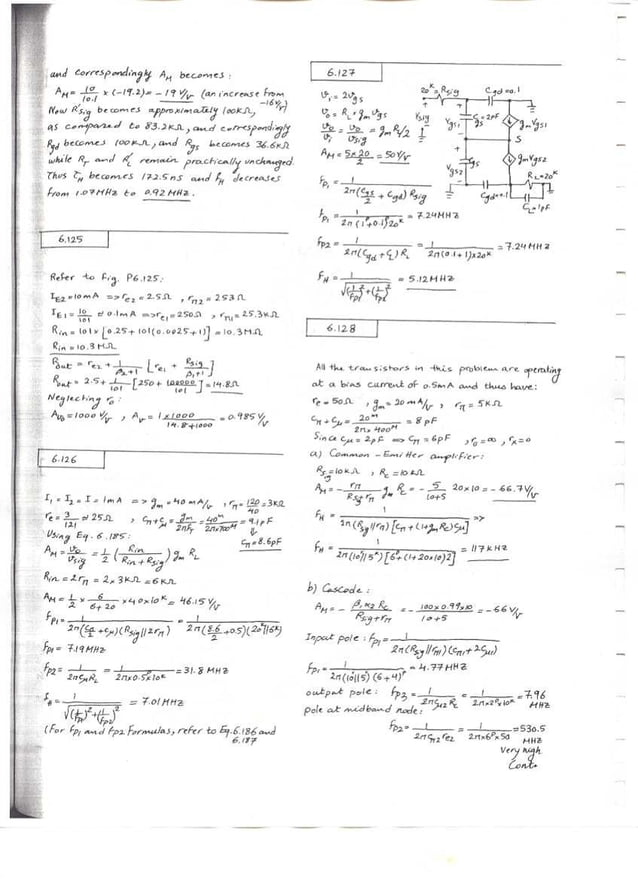 and correspondingly A_M becomes:
A_M = 10/10.1 × (-19.2) = -19 V/V (an increase from -16 V/V)
New R'sig becomes approximately 100KΩ,
as compared to 83.2KΩ, and correspondingly
Rgd becomes 100KΩ, and Rgs becomes 36.6KΩ
while R_T and R'_L remain practically unchanged
Thus τ_H becomes 172.5ns and f_H decreases
from 1.07MHz to 0.92MHz.
6.125
Refer to fig. P6.125:
I_E2 = 10mA => r_e2 = 2.5Ω, r_π2 = 253Ω
I_E1 = 10/101 ≈ 0.1mA => r_e1 = 250Ω, r_π1 = 25.3KΩ
Rin = 101×[0.25+101(0.0025+1)] = 10.3MΩ
Rin = 10.3MΩ
Rout = r_e2 + 1/(β2+1) [r_e1 + Rsig/(β1+1)]
Rout = 2.5 + 1/101 [250 + 100000/101] = 14.8Ω
Neglecting r_o:
A_vo = 1000 V/V, A_v = 1×1000/(14.8+1000) = 0.985 V/V
6.126
I1 = I2 = I = 1mA => gm = 40mA/V, rπ = 120/40 = 3KΩ
re = 3/121 ≈ 25Ω, Cπ+Cμ = gm/2πf_T = 40m/2π×700M = 9.1pF
Cπ = 8.6pF
Using Eq. 6.185:
A_M = Vo/Vsig = 1/2 (Rin/(Rin+Rsig)) gm R_L
Rin = 2rπ = 2×3KΩ = 6KΩ
A_M = 1/2 × 6/(6+20) × 40×10K = 46.15 V/V
f_P1 = 1/(2π(Cπ/2+Cμ)(Rsig||2rπ)) = 1/(2π(8.6/2+0.5)(20K||6K))
f_P1 = 7.19MHz
f_P2 = 1/(2πCμR_L) = 1/(2π×0.5P×10K) = 31.8MHz
f_H = 1/√((1/f_P1)²+(1/f_P2)²) = 7.01MHz
(For f_P1 and f_P2 formulas, refer to Eq.6.186 and
6.187
6.127
20K = Rsig Cgd=0.1
Vsig Vgs1 Cgs=2pF gmVgs1
S
Vgs2 Cgs gmVgs2
Cgd=0.1 R_L=20K
C_L=1pF
Vi = 2Vgs
Vo = R_L × gmVgs
Vo/Vi = Vo/Vsig = gm R_L/2
A_M = 5×20/2 = 50 V/V
f_P1 = 1/(2π(Cgs/2 + Cgd)Rsig)
f_P1 = 1/(2π(1P+0.1P)20K) = 7.24MHz
f_P2 = 1/(2π(Cgd+C_L)R_L) = 1/(2π(0.1+1)×20K) = 7.24MHz
f_H = 1/√((1/f_P1)²+(1/f_P2)²) = 5.12MHz
6.128
All the transistors in this problem are operating
at a bias current of 0.5mA and thus have:
re = 50Ω, gm = 20mA/V, rπ = 5KΩ
Cπ+Cμ = 20m/2π×400M = 8pF
Since Cμ = 2pF => Cπ = 6pF, ro = ∞, rx = 0
a) Common-Emitter amplifier:
Rsig = 10KΩ, Rc = 10KΩ
A_M = - rπ/(Rsig+rπ) gm Rc = - 5/(10+5) 20×10 = -66.7 V/V
f_H = 1/(2π(Rsig||rπ)[Cπ+(1+gmRc)Cμ]) =>
f_H = 1/(2π(10K||5K)[6P+(1+20×10)2]) = 117KHz
b) Cascode:
A_M = - β1α2Rc/(Rsig+rπ) = - 100×0.99×10/(10+5) = -66 V/V
Input pole: f_P1 = 1/(2π(Rsig||rπ)(Cπ1+2Cμ1))
f_P1 = 1/(2π(10K||5K)(6+4)P) = 4.77MHz
output pole: f_P3 = 1/(2πCμ2Rc) = 1/(2π×2P×10K) = 7.96 MHz
pole at midband node:
f_P2 = 1/(2πCπ2re2) = 1/(2π×6P×50) = 530.5 MHz
very high
Cont.